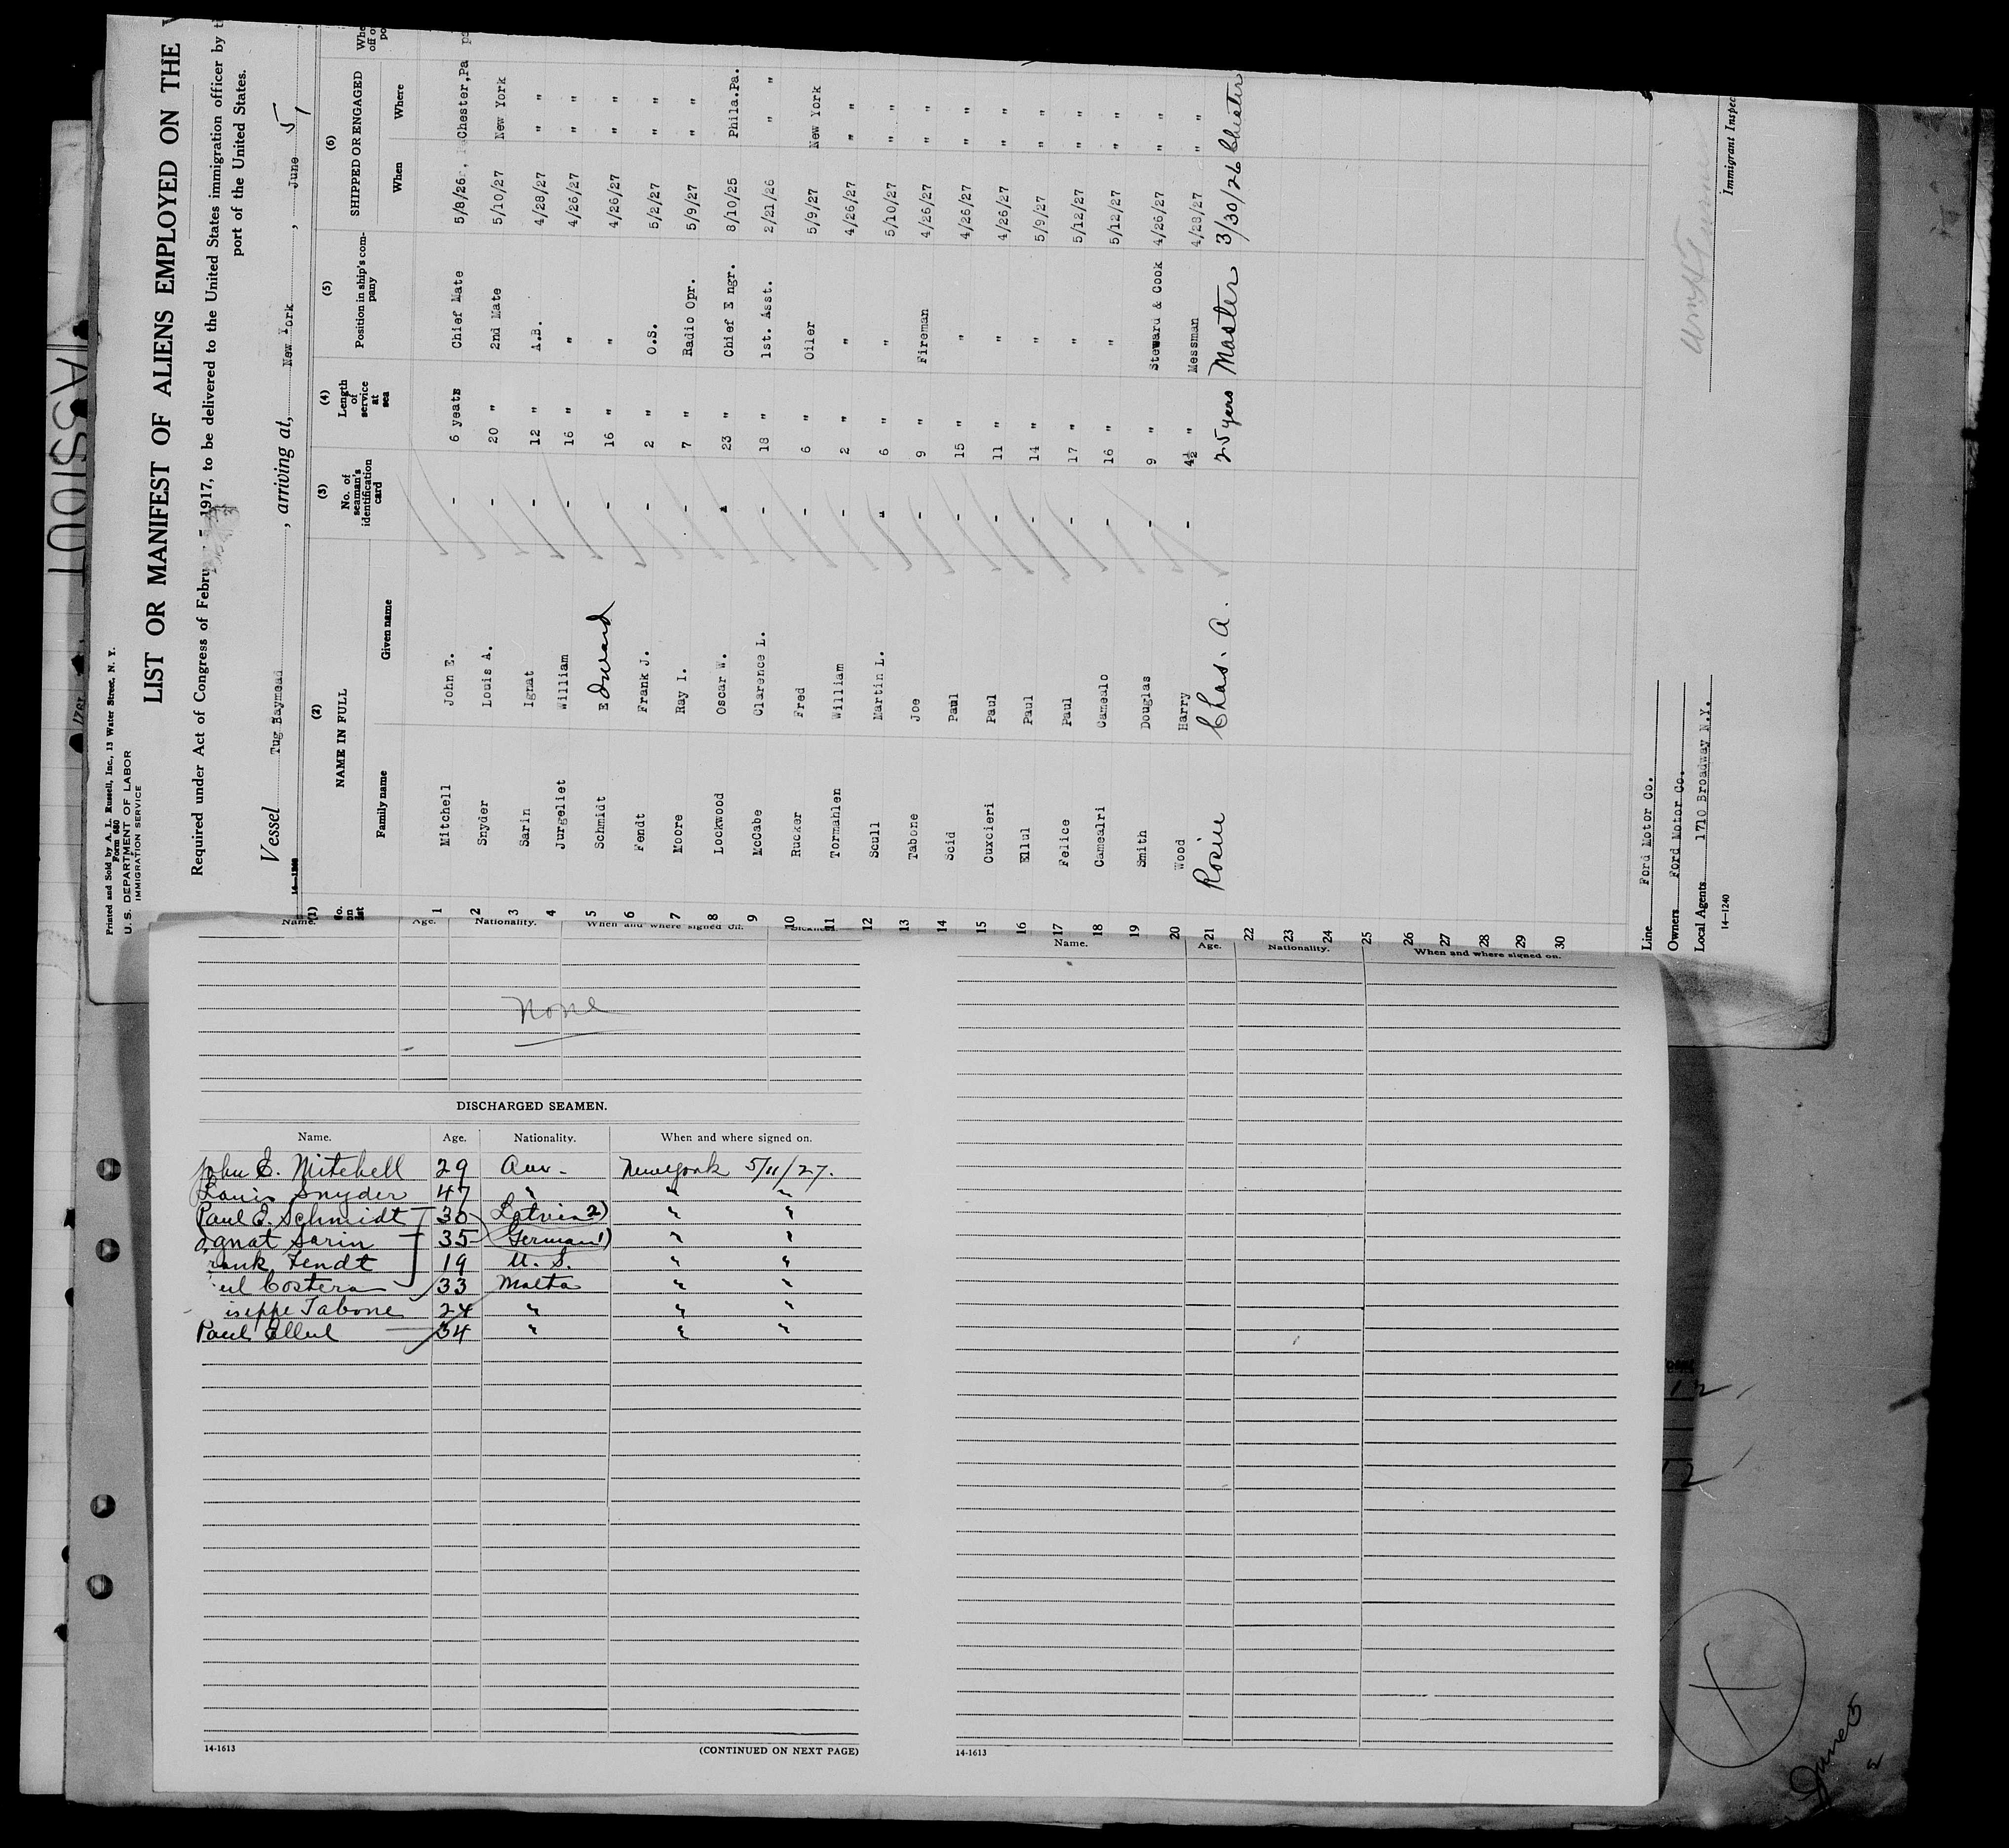 Printed and Sold by A. L. Russell, Inc., 13 Water Street, N. Y.
Form 680
U. S. DEPARTMENT OF LABOR
IMMIGRATION SERVICE
LIST OR MANIFEST OF ALIENS EMPLOYED ON THE
Required under Act of Congress of February 5, 1917, to be delivered to the United States immigration officer by
port of the United States.
Vessel Tug Baymead, arriving at, New York, June 5
14—1240
(1) No. on list (2) NAME IN FULL (3) No. of seaman's identification card (4) Length of service at sea (5) Position in ship's company (6) SHIPPED OR ENGAGED
Family name Given name When Where
1 Mitchell John E. - 6 years Chief Mate 5/8/26 Chester, Pa
2 Snyder Louis A. - 20 " 2nd Mate 5/10/27 New York
3 Sarin Ignat - 12 " A.B. 4/28/27 " "
4 Jurgeliet William - 16 " " 4/26/27 " "
5 Schmidt Edward - 16 " " 4/26/27 " "
6 Fendt Frank J. - 2 " O.S. 5/2/27 " "
7 Moore Ray I. - 7 " Radio Opr. 5/9/27 " "
8 Lockwood Oscar W. - 23 " Chief Engr. 8/10/25 Phila.Pa.
9 McCabe Clarence L. - 18 " 1st. Asst. 2/21/26 " "
10 Rucker Fred - 6 " Oiler 5/9/27 New York
11 Tormahlen William - 2 " " 4/26/27 " "
12 Scull Martin L. - 6 " " 5/10/27 " "
13 Tabone Joe - 9 " Fireman 4/26/27 " "
14 Scid Paul - 15 " " 4/26/27 " "
15 Cuxcieri Paul - 11 " " 4/26/27 " "
16 Ellul Paul - 14 " " 5/9/27 " "
17 Felice Paul - 17 " " 5/12/27 " "
18 Camealri Camealo - 16 " " 5/12/27 " "
19 Smith Douglas - 9 " Steward & Cook 4/26/27 " "
20 Wood Harry - 4½ " Messman 4/28/27 " "
21 Rosin Chas. A. 25 years Master 3/30/26 Chester
22
23
24
25
26
27
28
29
30
Line Ford Motor Co.
Owners Ford Motor Co.
Local Agents 1710 Broadway N.Y.
14—1240
Immigrant Inspec
Name. Age. Nationality. When and where signed on.
None
DISCHARGED SEAMEN.
Name. Age. Nationality. When and where signed on.
John E. Mitchell 29 Am- New York 5/11/27.
Louis Snyder 47 " " "
Paul E. Schmidt 30 Latvia 2) " "
Ignat Sarin 35 German 1) " "
rank Fendt 19 U. S. " "
ul Costera 33 Malta " "
iseppe Tabone 24 " " "
Paul Ellul 34 " " "
14-1613
(CONTINUED ON NEXT PAGE)
Name. Age. Nationality. When and where signed on.
14-1613
June 5